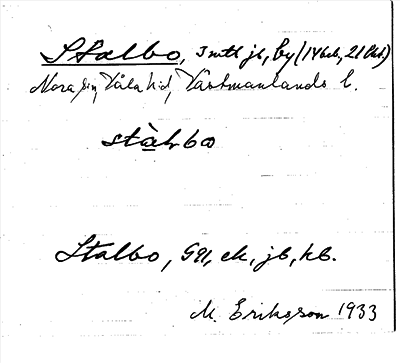 Stalbo, 3 mtl jb, by (14 bd, 21 lht.)
Nora sn, Våla hd, Västmanlands l.
stàlbo
Stalbo, GEl, ek, jb, kb.
M. Eriksson 1933